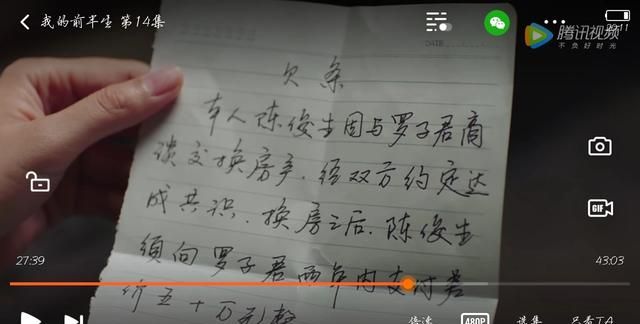 我的前半生 第14集
20:11
腾讯视频
不负好时光
DATE
欠条
本人陈俊生因与罗子君商
谈交换房产,经双方约定达
成共识,换房之后,陈俊生
须向罗子君两年内支付差
价五十万元整
GIF
27:39
43:03
倍速
480P
选集
只看TA